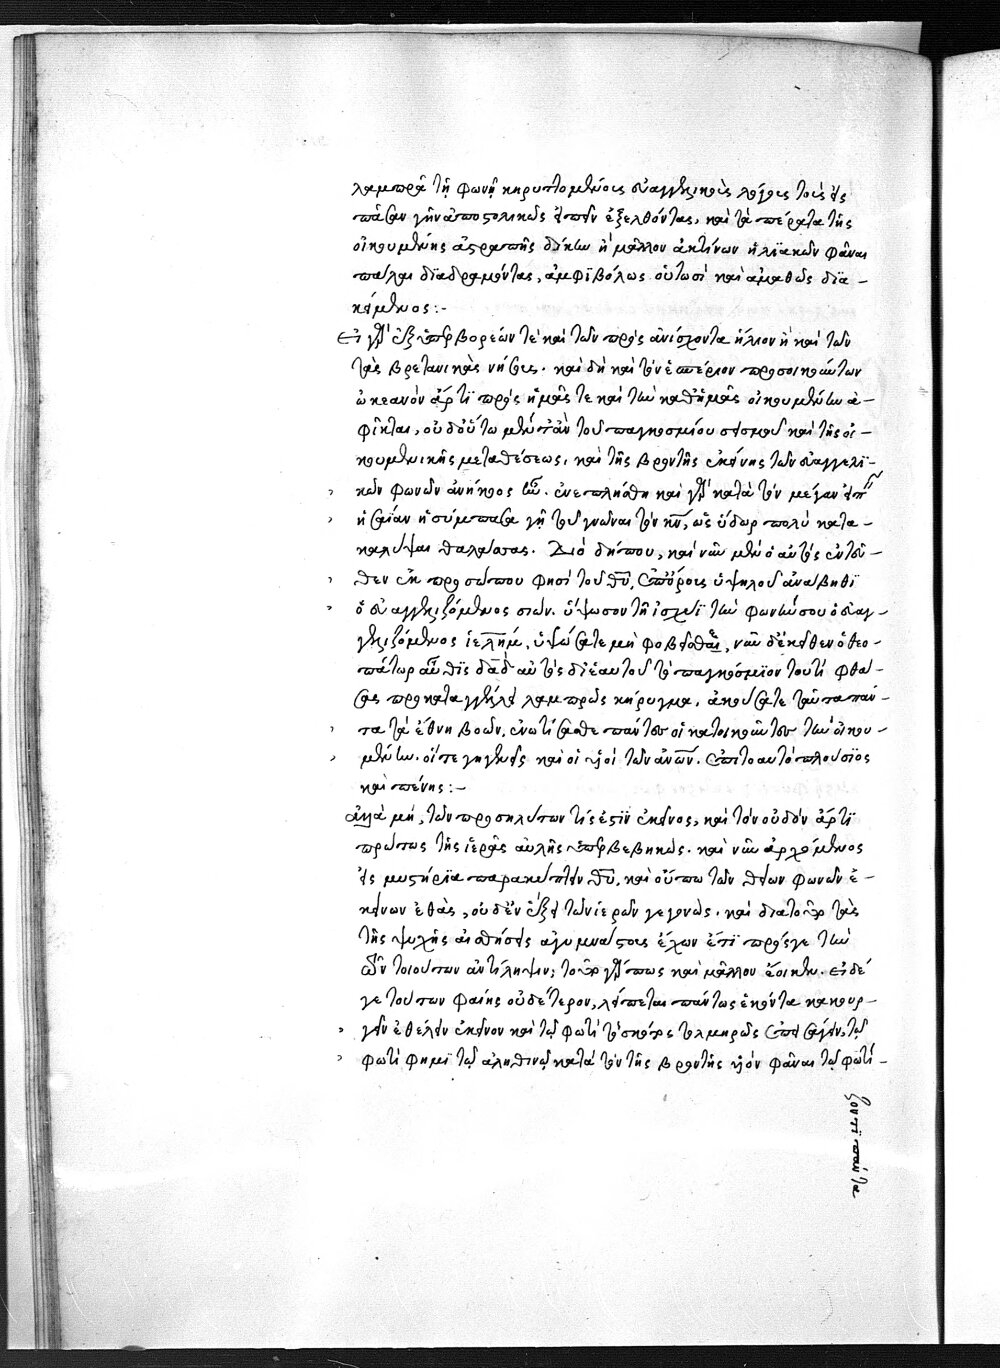 λαμπρᾷ τῇ φωνῇ κηρυττομένοις εὐαγγελικοῖς λόγοις τοῖς εἰς
πᾶσαν γῆν ἀποστολικῶς εἰπεῖν ἐξελθόντας, καὶ τὰ πέρατα τῆς
οἰκουμένης ἀστραπῆς δίκην ἢ μᾶλλον ἀκτίνων ἡλϊακῶν φᾶναι
πάλαι δϊαδραμόντας, ἀμφιβόλως οὑτωσὶ καὶ ἀμαθῶς δϊα-
κείμενος:-
Εἰ γὰρ ἐξ ὑπερβορέων τὲ καὶ τῶν πρὸς ἀνίσχοντα ἥλιον ἢ καὶ τῶν
τὰς βρετανικὰς νήσους. καὶ δὴ καὶ τὸν ἑσπέριον προσοικούντων
ὠκεανὸν ἄρτϊ πρὸς ἡμᾶς τε καὶ τὴν καθημᾶς οἰκουμένην ἀ-
φῖκται, οὐδ' οὕτω μέντἂν τοῦ παγκοσμίου σεισμοῦ καὶ τῆς οἰ-
κουμενικῆς μεταθέσεως, καὶ τῆς βροντῆς ἐκείνης τῶν εὐαγγελϊ-
κῶν φωνῶν ἀνήκοος ἦν. ἐνεπλήσθη καὶ γὰρ κατὰ τὸν μέγαν εἰπεῖν
ἡσαΐαν ἡ σύμπασα γῆ τοῦ γνῶναι τὸν κν, ὡς ὕδωρ πολὺ κατα-
καλύψαι θαλάσσας. Διὸ δήπου, καὶ νῦν μὲν ὁ αὐτὸς ἐντεῦ-
θεν ἐκ προσώπου φησὶ τοῦ θυ, ἐπ' ὄρους ὑψηλοῦ ἀνάβηθϊ
ὁ εὐαγγελιζόμενος σιών. ὕψωσον τῇ ἰσχύϊ τὴν φωνήν σου ὁ εὐαγ-
γελιζόμενος ἱελημ, ὑψώσατε μὴ φοβεῖσθαι, νῦν δ' ἐκεῖθεν ὁ θεο-
πάτωρ αὖθϊς δαδ αὐτὸς δι' ἑαυτοῦ τὸ παγκόσμϊον τουτὶ φθά-
σας προκαταγγέλλει λαμπρῶς κήρυγμα, ἀκούσατε ταῦτα πάν-
τα τὰ ἔθνη βοῶν, ἐνωτίσασθε πάντες οἱ κατοικοῦντες τὴν οἰκου-
μένην. οἵ τε γηγενεῖς καὶ οἱ υἱοὶ τῶν ἀνων. ἐπιτοαυτὸ πλούσϊος
καὶ πένης:-
ἀλλὰ μὴν, τῶν προσηλύτων τίς ἐστϊν ἐκεῖνος, καὶ τὸν οὐδὸν ἄρτϊ
πρώτως τῆς ἱερᾶς αὐλῆς ὑπερβεβηκὼς. καὶ νῦν ἀρχόμενος
εἰς μυστήρϊα παρακύπτειν θυ, καὶ οὔπω τῶν θείων φωνῶν ἐ-
κείνων ἐθὰς, οὐδ' ἐν ἕξει τῶν ἱερῶν γεγονὼς. καὶ διατοῦτο τὰς
τῆς ψυχῆς αἰσθήσεις ἀγυμνάστους ἔχων ἔτϊ πρός γε τὴν
τῶν τοιούτων ἀντίληψιν; τοῦτο γάρ πως καὶ μᾶλλον ἔοικεν. Εἰ δέ
γε τούτων φαίης οὐδέτερον, λείπεται πάντως ἑκόντα κακουρ-
γεῖν ἐθέλειν ἐκεῖνον καὶ τῷ φωτὶ τὸ σκότος τολμηρῶς ἐπεισάγειν, τῷ
φωτὶ φημὶ τῷ ἀληθινῷ κατὰ τὸν τῆς βροντῆς υἱὸν φᾶναι τῷ φωτί-
ζοντϊ πάντα